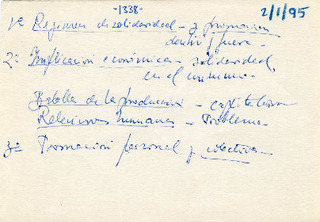 -1338-
2/1/95
1º Regimen de solidaridad - y promoción
dentro y fuera -
2º Implicación económica - solidaridad
en el consumo -
Batalla de la producción - capitalismo
Relaciones humanas - Problema -
3º Promoción personal y colectiva -